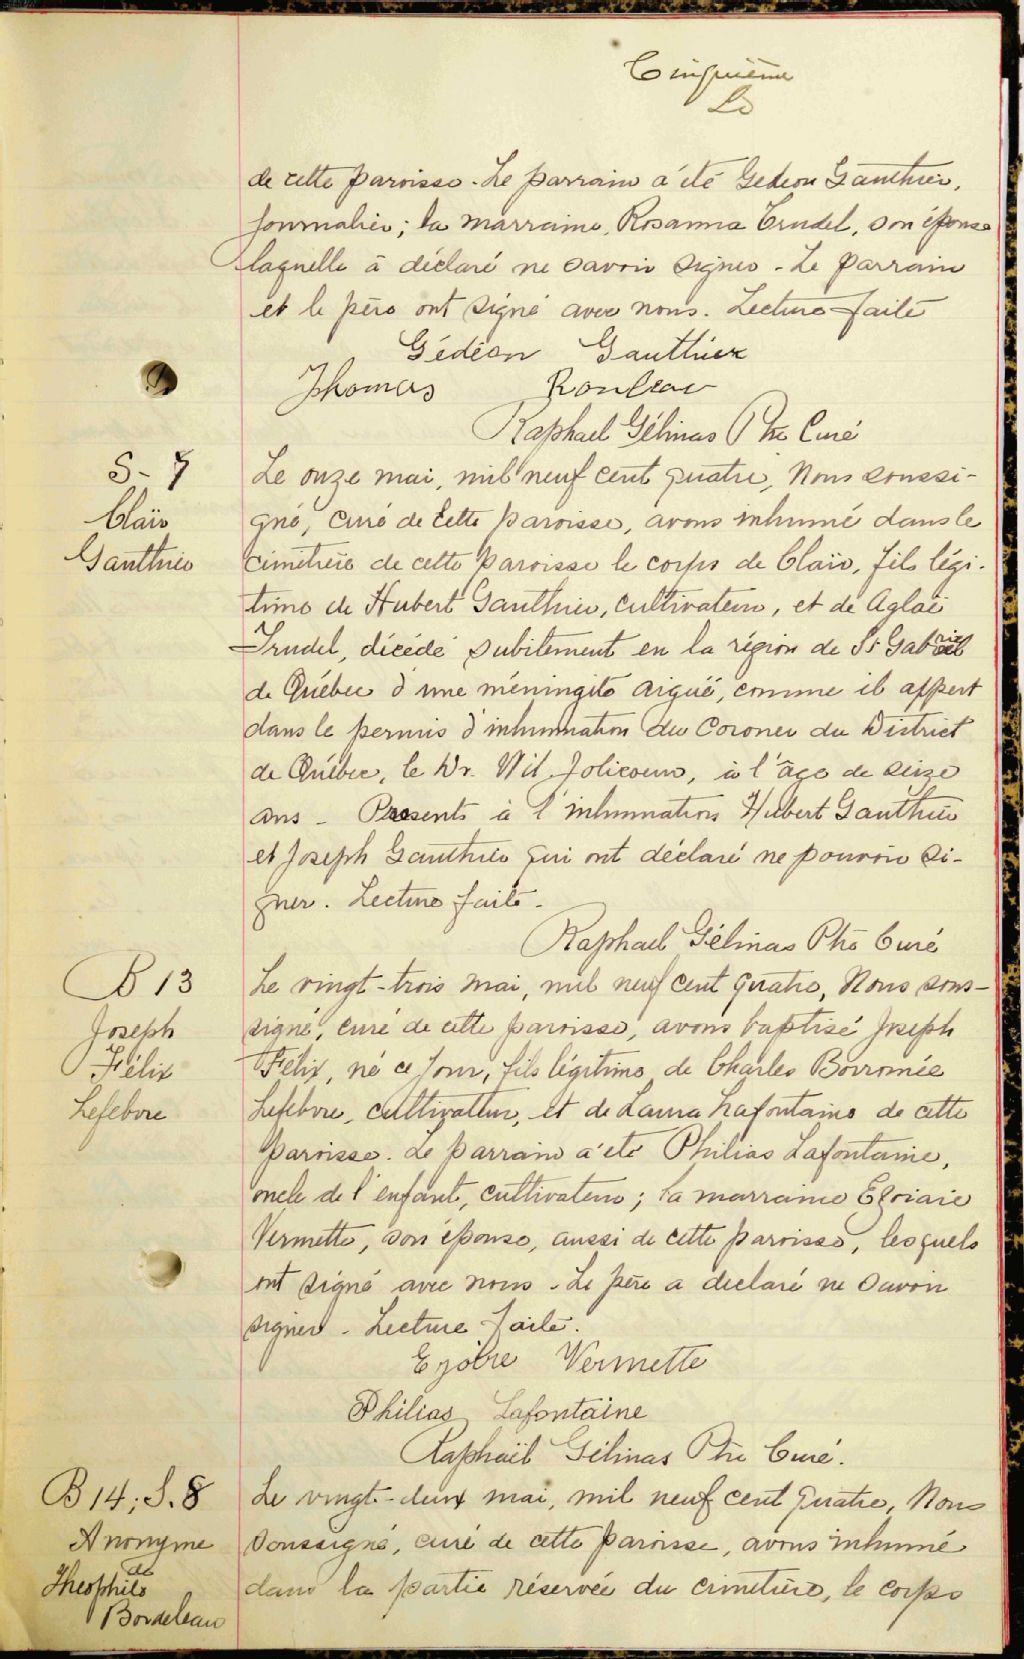 Cinquième
de cette paroisse. Le parrain a été Gedeon Gauthier,
journalier; la marraine, Rosanna Trudel, son épouse
laquelle a déclaré ne savoir signer - Le parrain
et le père ont signé avec nous. Lecture faite
Gédéon Gauthier
Thomas Rouleau
Raphael Gélinas Ptre Curé
S-7
Claïr
Gauthier
Le onze mai, mil neuf cent quatre, Nous soussi-
gné, curé de cette paroisse, avons inhumé dans le
cimetière de cette paroisse le corps de Claïr, fils légi-
time de Hubert Gauthier, cultivateur, et de Aglaé
Trudel, décédé subitement en la région de St Gabriel
de Québec d'une méningite aiguë, comme il appert
dans le permis d'inhumation du Coroner du District
de Québec, le Dr. Wil. Jolicoeur, à l'âge de seize
ans - Présents à l'inhumation Hubert Gauthier
et Joseph Gauthier qui ont déclaré ne pouvoir si-
gner. Lecture faite -
Raphael Gélinas Ptre Curé
B 13
Joseph
Félix
Lefebvre
Le vingt-trois mai, mil neuf cent quatre, Nous sous-
signé, curé de cette paroisse, avons baptisé Joseph
Félix, né ce jour, fils légitime de Charles Borromée
Lefebvre, cultivateur, et de Laura Lafontaine de cette
paroisse. Le parrain a été Philias Lafontaine,
oncle de l'enfant, cultivateur; la marraine Ezoiare
Vermette, son épouse, aussi de cette paroisse, lesquels
ont signé avec nous - Le père a declaré ne savoir
signer - Lecture faite.
Ezoire Vermette
Philias Lafontaine
Raphaël Gélinas Ptre Curé.
B 14; S. 8
Anonyme
de
Theophile
Bordeleau
Le vingt-deux mai, mil neuf cent quatre, Nous
soussigné, curé de cette paroisse, avons inhumé
dans la partie réservée du cimetière, le corps